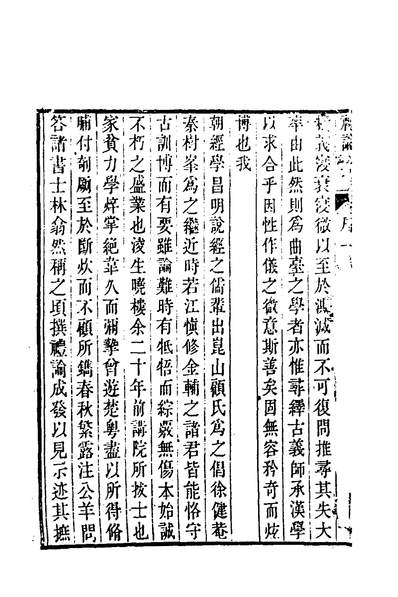 義寖衰寖微以至於澌滅而不可復問推尋其失大
率由此然則爲曲臺之學者亦惟尋繹古義師承漢學
以求合乎因性作儀之微意斯善矣固無容矜奇而炫
博也我
朝經學昌明說經之儒輩出崑山顧氏爲之倡徐健菴
秦樹峯爲之繼近時若江愼修金輔之諸君皆能恪守
古訓博而有要雖論難時有牴牾而綜覈無傷本始誠
不朽之盛業也淩生曉樓余二十年前講院所拔士也
家貧力學焠掌絕韋久而彌摯曾遊楚粵盡以所得脩
脯付剞劂至於斷炊而不顧所鐫春秋繁露注公羊問
答諸書士林翕然稱之頃撰禮論成發以見示迹其摭